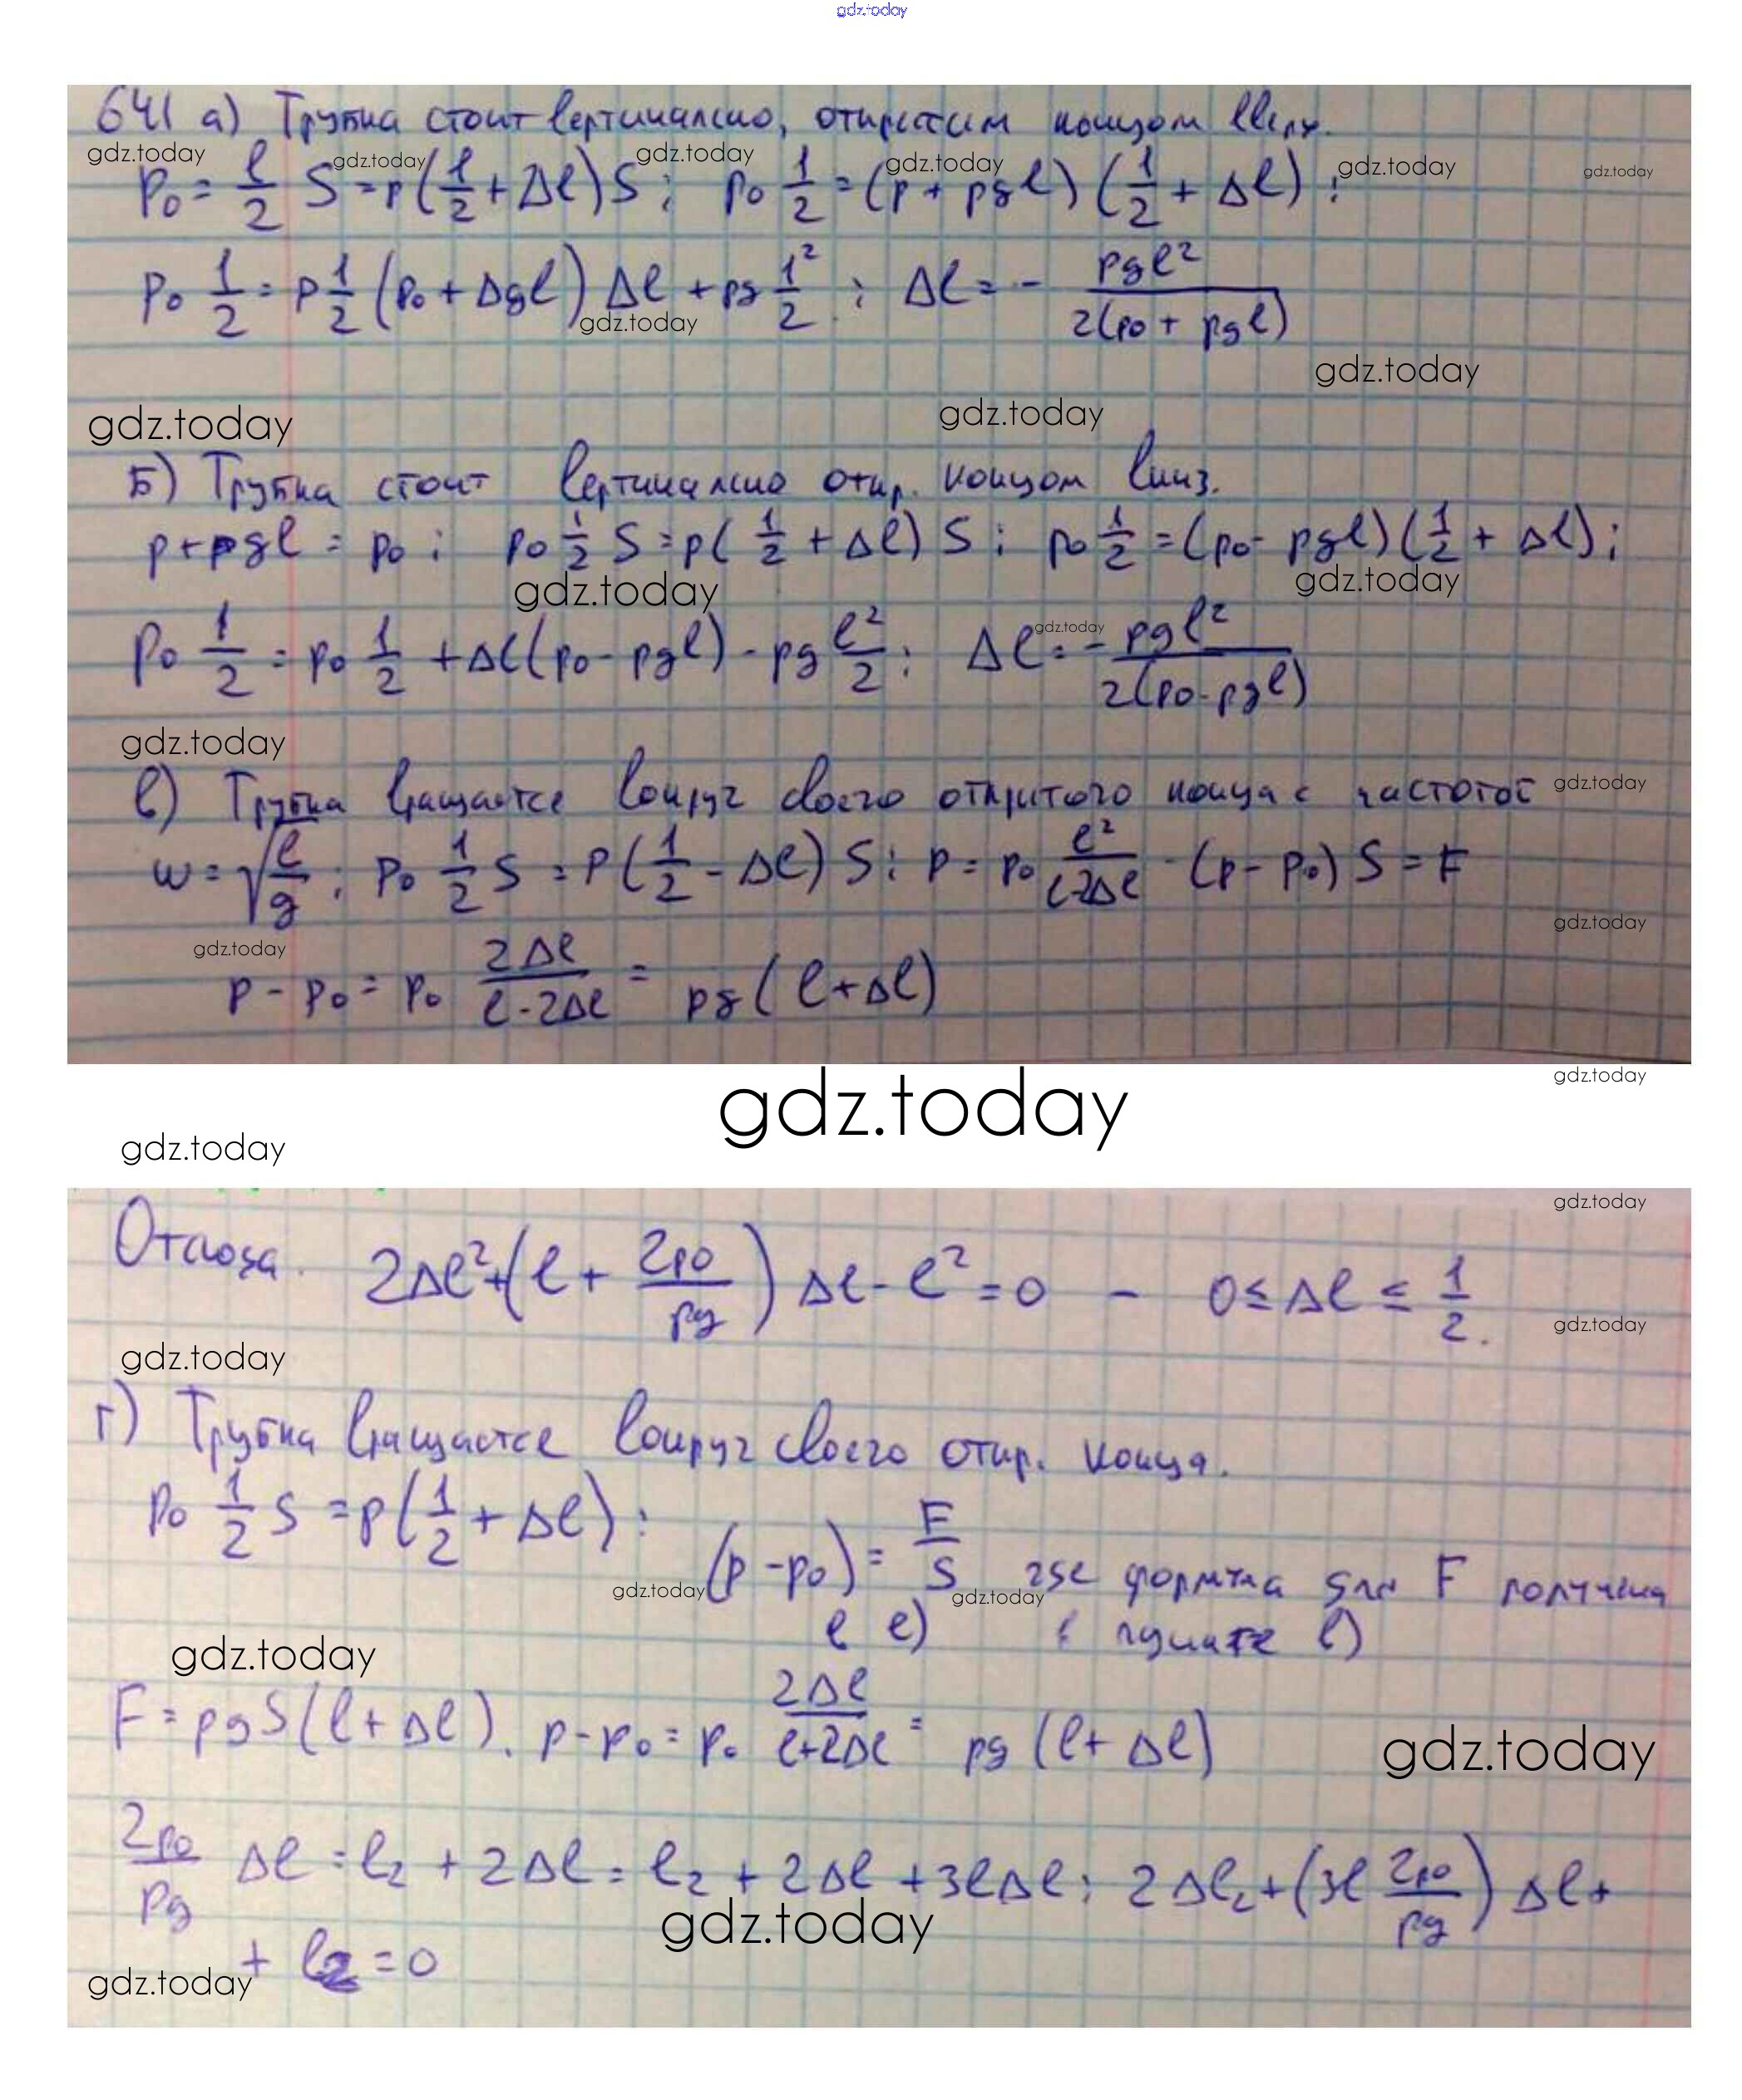 gdz.today
641 а) Трубка стоит вертикально, открытым концом вверх.
gdz.today gdz.today gdz.today gdz.today gdz.today gdz.today
p₀ = l/2 S = p(1/2 + Δl)S; p₀ 1/2 = (p + ρgl)(1/2 + Δl);
p₀ 1/2 = p 1/2 (p₀ + Δgl) Δl + ρg 1²/2; Δl = - ρgl²/2(p₀ + ρgl)
gdz.today
gdz.today
gdz.today gdz.today
Б) Трубка стоит вертикально откр. концом вниз.
p + ρgl = p₀; p₀ 1/2 S = p(1/2 + Δl) S; p₀ 1/2 = (p₀ - ρgl)(1/2 + Δl);
gdz.today gdz.today
gdz.today
p₀ 1/2 = p₀ 1/2 + Δl(p₀ - ρgl) - ρg l²/2; Δl = - ρgl²/2(p₀ - ρgl)
gdz.today
в) Трубка вращается вокруг своего открытого конца с частотой
gdz.today
w = √l/g; p₀ 1/2 S = p(1/2 - Δl) S; p = p₀ l²/l-2Δl - (p - p₀) S = F
gdz.today
gdz.today
p - p₀ = p₀ 2Δl/l-2Δl = ρg(l + Δl)
gdz.today
gdz.today
gdz.today
gdz.today
Отсюда. 2Δl² + (l + 2p₀/ρg) Δl - l² = 0 - 0 ≤ Δl ≤ 1/2.
gdz.today
gdz.today
г) Трубка вращается вокруг своего откр. конца.
p₀ 1/2 S = p(1/2 + Δl); (p - p₀) = F/S где формула для F получена
gdz.today gdz.today
в в) в пункте в)
gdz.today
F = ρgS(l + Δl). p - p₀ = p₀ 2Δl/l+2Δl = ρg(l + Δl)
gdz.today
2p₀/ρg Δl = l₂ + 2Δl = l₂ + 2Δl + 3lΔl; 2Δl₂ + (3l 2p₀/ρg) Δl +
gdz.today
+ l₂ = 0
gdz.today